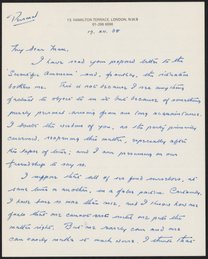 Personal
15, HAMILTON TERRACE, LONDON, N.W.8
01-286 6598
17. XII. 88
My dear
I have read your proposed letter to the
Scientific American and, frankly, the intention
bothers me. That is not because I see anything
to object to in it but because of something
purely personal arising from my long acquaintance.
I doubt the wisdom of you, as the party primarily
concerned, reopening this matter, especially after
the lapse of time, and I am presuming on our
friendship to say so.
I suppose that all of us find ourselves, at
some time or another, in a false position. Certainly,
I have done so more than once, and I know how one
feels that one cannot rest until one puts the
matter right. But one rarely can and one
can easily make it much worse. I think that